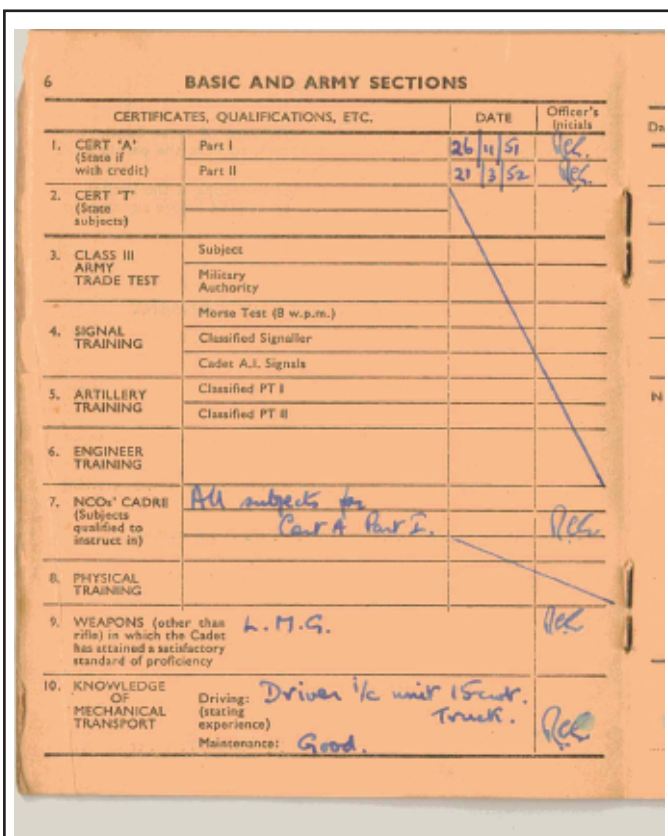 6 BASIC AND ARMY SECTIONS
CERTIFICATES, QUALIFICATIONS, ETC. DATE Officer's Initials
1. CERT 'A' (State if with credit) Part I 26 11 51
Part II 21 3 52
2. CERT 'T' (State subjects)
3. CLASS III ARMY TRADE TEST Subject
Military Authority
4. SIGNAL TRAINING Morse Test (8 w.p.m.)
Classified Signaller
Cadet A.I. Signals
5. ARTILLERY TRAINING Classified PT I
Classified PT II
6. ENGINEER TRAINING
7. NCOs' CADRE (Subjects qualified to instruct in) All subjects for
Cert A Part I.
8. PHYSICAL TRAINING
9. WEAPONS (other than rifle) in which the Cadet has attained a satisfactory standard of proficiency L.M.G.
10. KNOWLEDGE OF MECHANICAL TRANSPORT Driving: (stating experience) Driver i/c unit 15cwt.
Truck.
Maintenance: Good.